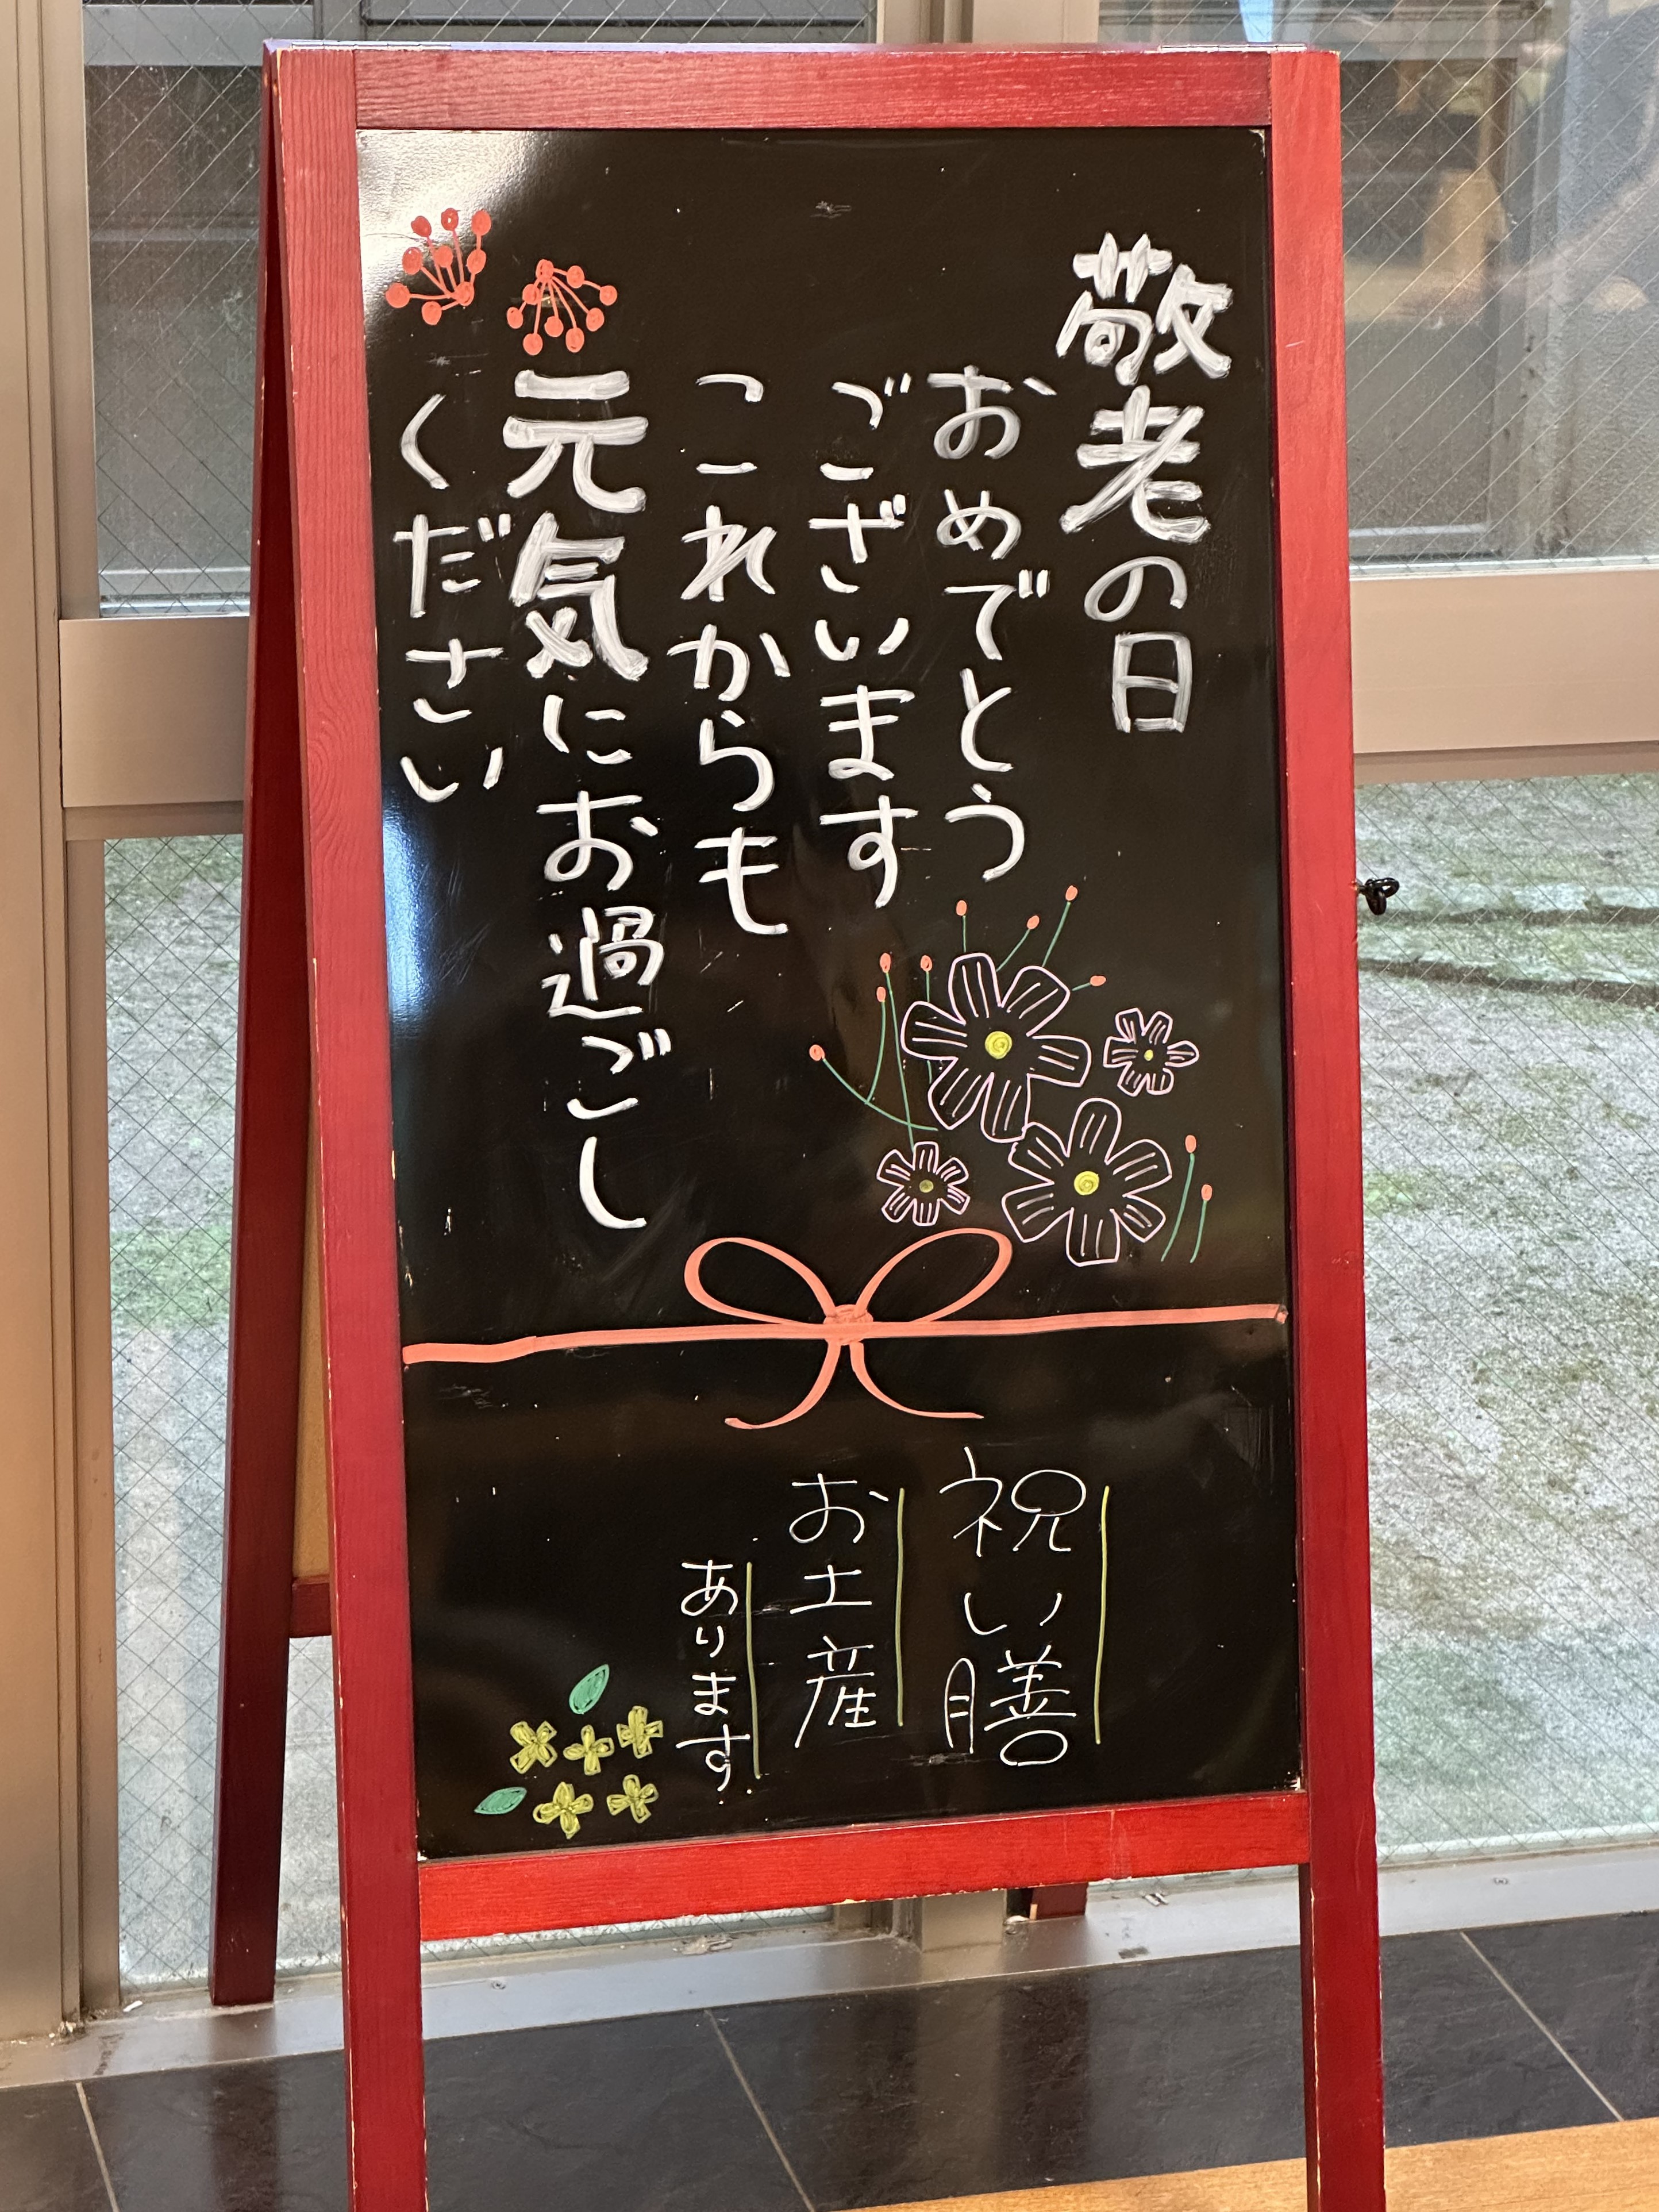 敬老の日
おめでとう
ございます
これからも
元気にお過ごし
ください
祝い膳
お土産
あります